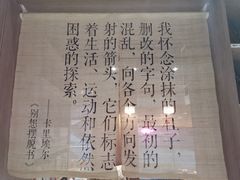 我怀念涂抹的日子，
删改的字句，最初的
混乱，向各个方向发
射的箭头，它们标志
着生活、运动和依然
困惑的探索。
——卡里埃尔
《别想摆脱书》